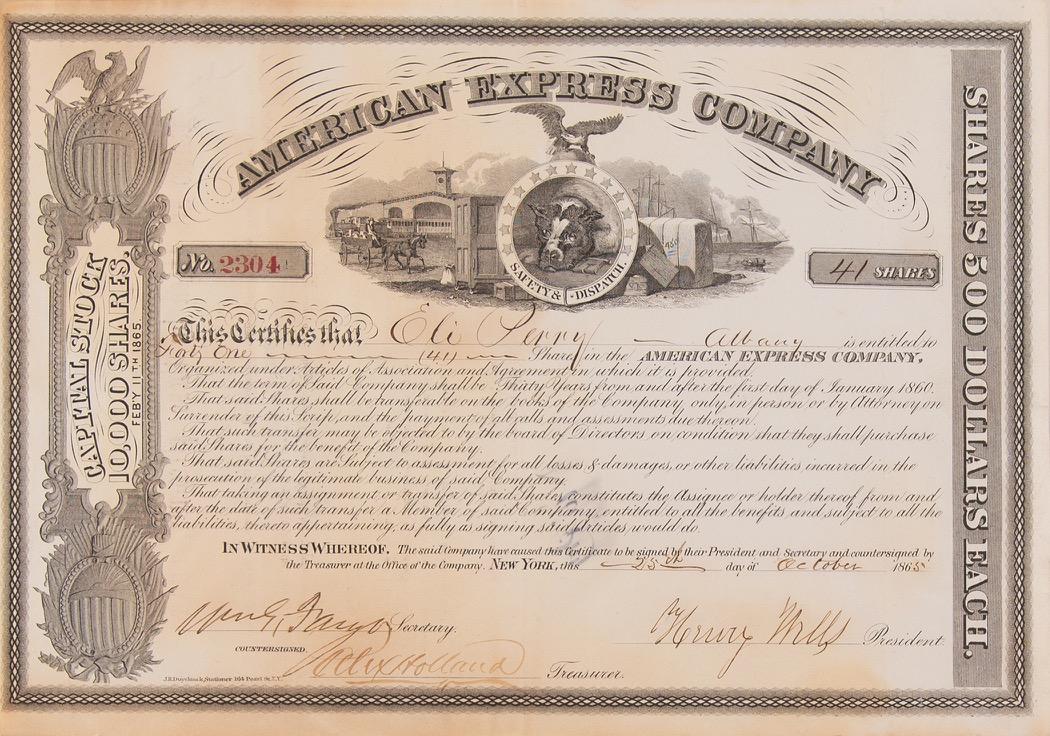 AMERICAN EXPRESS COMPANY
SAFETY & DISPATCH.
No. 2304
41 SHARES
CAPITAL STOCK
10,000 SHARES.
FEBY 11TH 1865
SHARES 500 DOLLARS EACH.
This Certifies that Eli Perry Albany is entitled to
Forty One (41) Shares in the AMERICAN EXPRESS COMPANY,
Organized under Articles of Association and Agreement, in which it is provided.
That the term of said Company shall be Thirty Years from and after the first day of January 1860.
That said Shares shall be transferable on the books of the Company only, in person or by Attorney on
Surrender of this Scrip, and the payment of all calls and assessments due thereon.
That such transfer may be objected to by the board of Directors on condition that they shall purchase
said Shares for the benefit of the Company.
That said Shares are Subject to assessment for all losses & damages, or other liabilities incurred in the
prosecution of the legitimate business of said Company.
That taking an assignment or transfer of said Shares constitutes the Assignee or holder thereof from and
after the date of such transfer a Member of said Company, entitled to all the benefits and subject to all the
liabilities, thereto appertaining, as fully as signing said Articles would do.
IN WITNESS WHEREOF, The said Company have caused this Certificate to be signed by their President and Secretary and countersigned by
the Treasurer at the Office of the Company. NEW YORK, this 25th day of October 1865
Wm G. Fargo Secretary.
Henry Wells President.
COUNTERSIGNED.
Alex Holland Treasurer.
J.R. Duychinck, Stationer 164 Pearl St. N.Y.